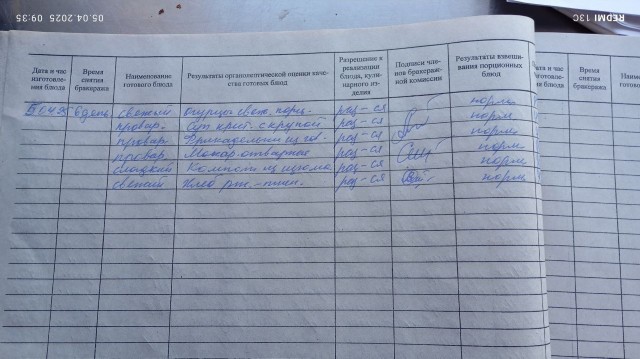 05.04.2025 09:35
REDMI 13C
Дата и час изготовления блюда
Время снятия бракеража
Наименование готового блюда
Результаты органолептической оценки качества готовых блюд
Разрешение к реализации блюда, кулинарного изделия
Подписи членов бракеражной комиссии
Результаты взвешивания порционных блюд
свежий огурцы свеж. порц. раз-ся норма
провар. суп крест. с крупой раз-ся норм
провар. Фрикадельки из гов. раз-ся норм
провар. Макар. отварные раз-ся норм
сладкий Компот из изюма раз-ся норм
свежий Хлеб рж.-пшен. раз-ся норм
Время снятия бракеража
Наименование готового блюда